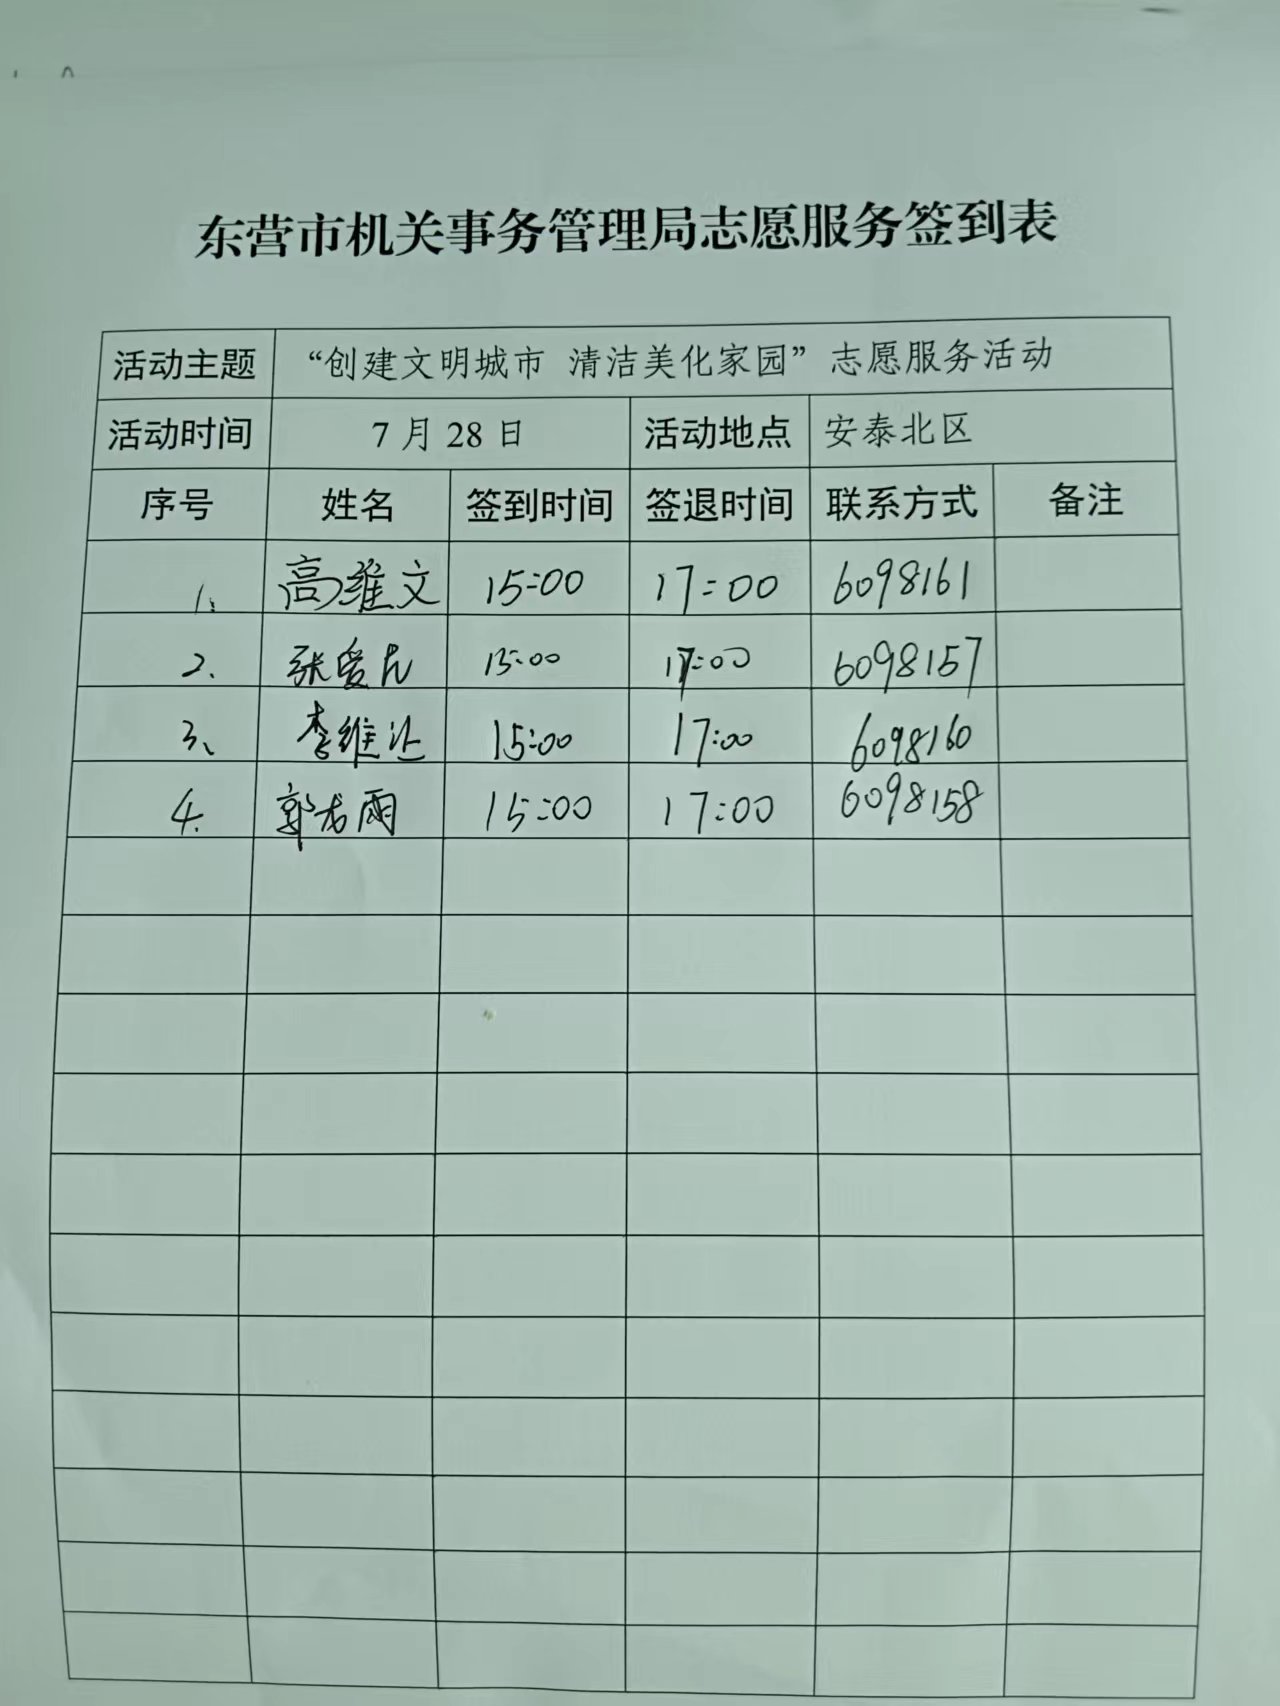 东营市机关事务管理局志愿服务签到表
活动主题 “创建文明城市 清洁美化家园”志愿服务活动
活动时间 7月28日 活动地点 安泰北区
序号 姓名 签到时间 签退时间 联系方式 备注
1、 高维文 15:00 17:00 6098161
2、 张爱 15:00 17:00 6098157
3、 李维 15:00 17:00 6098160
4、 郭 雨 15:00 17:00 6098158